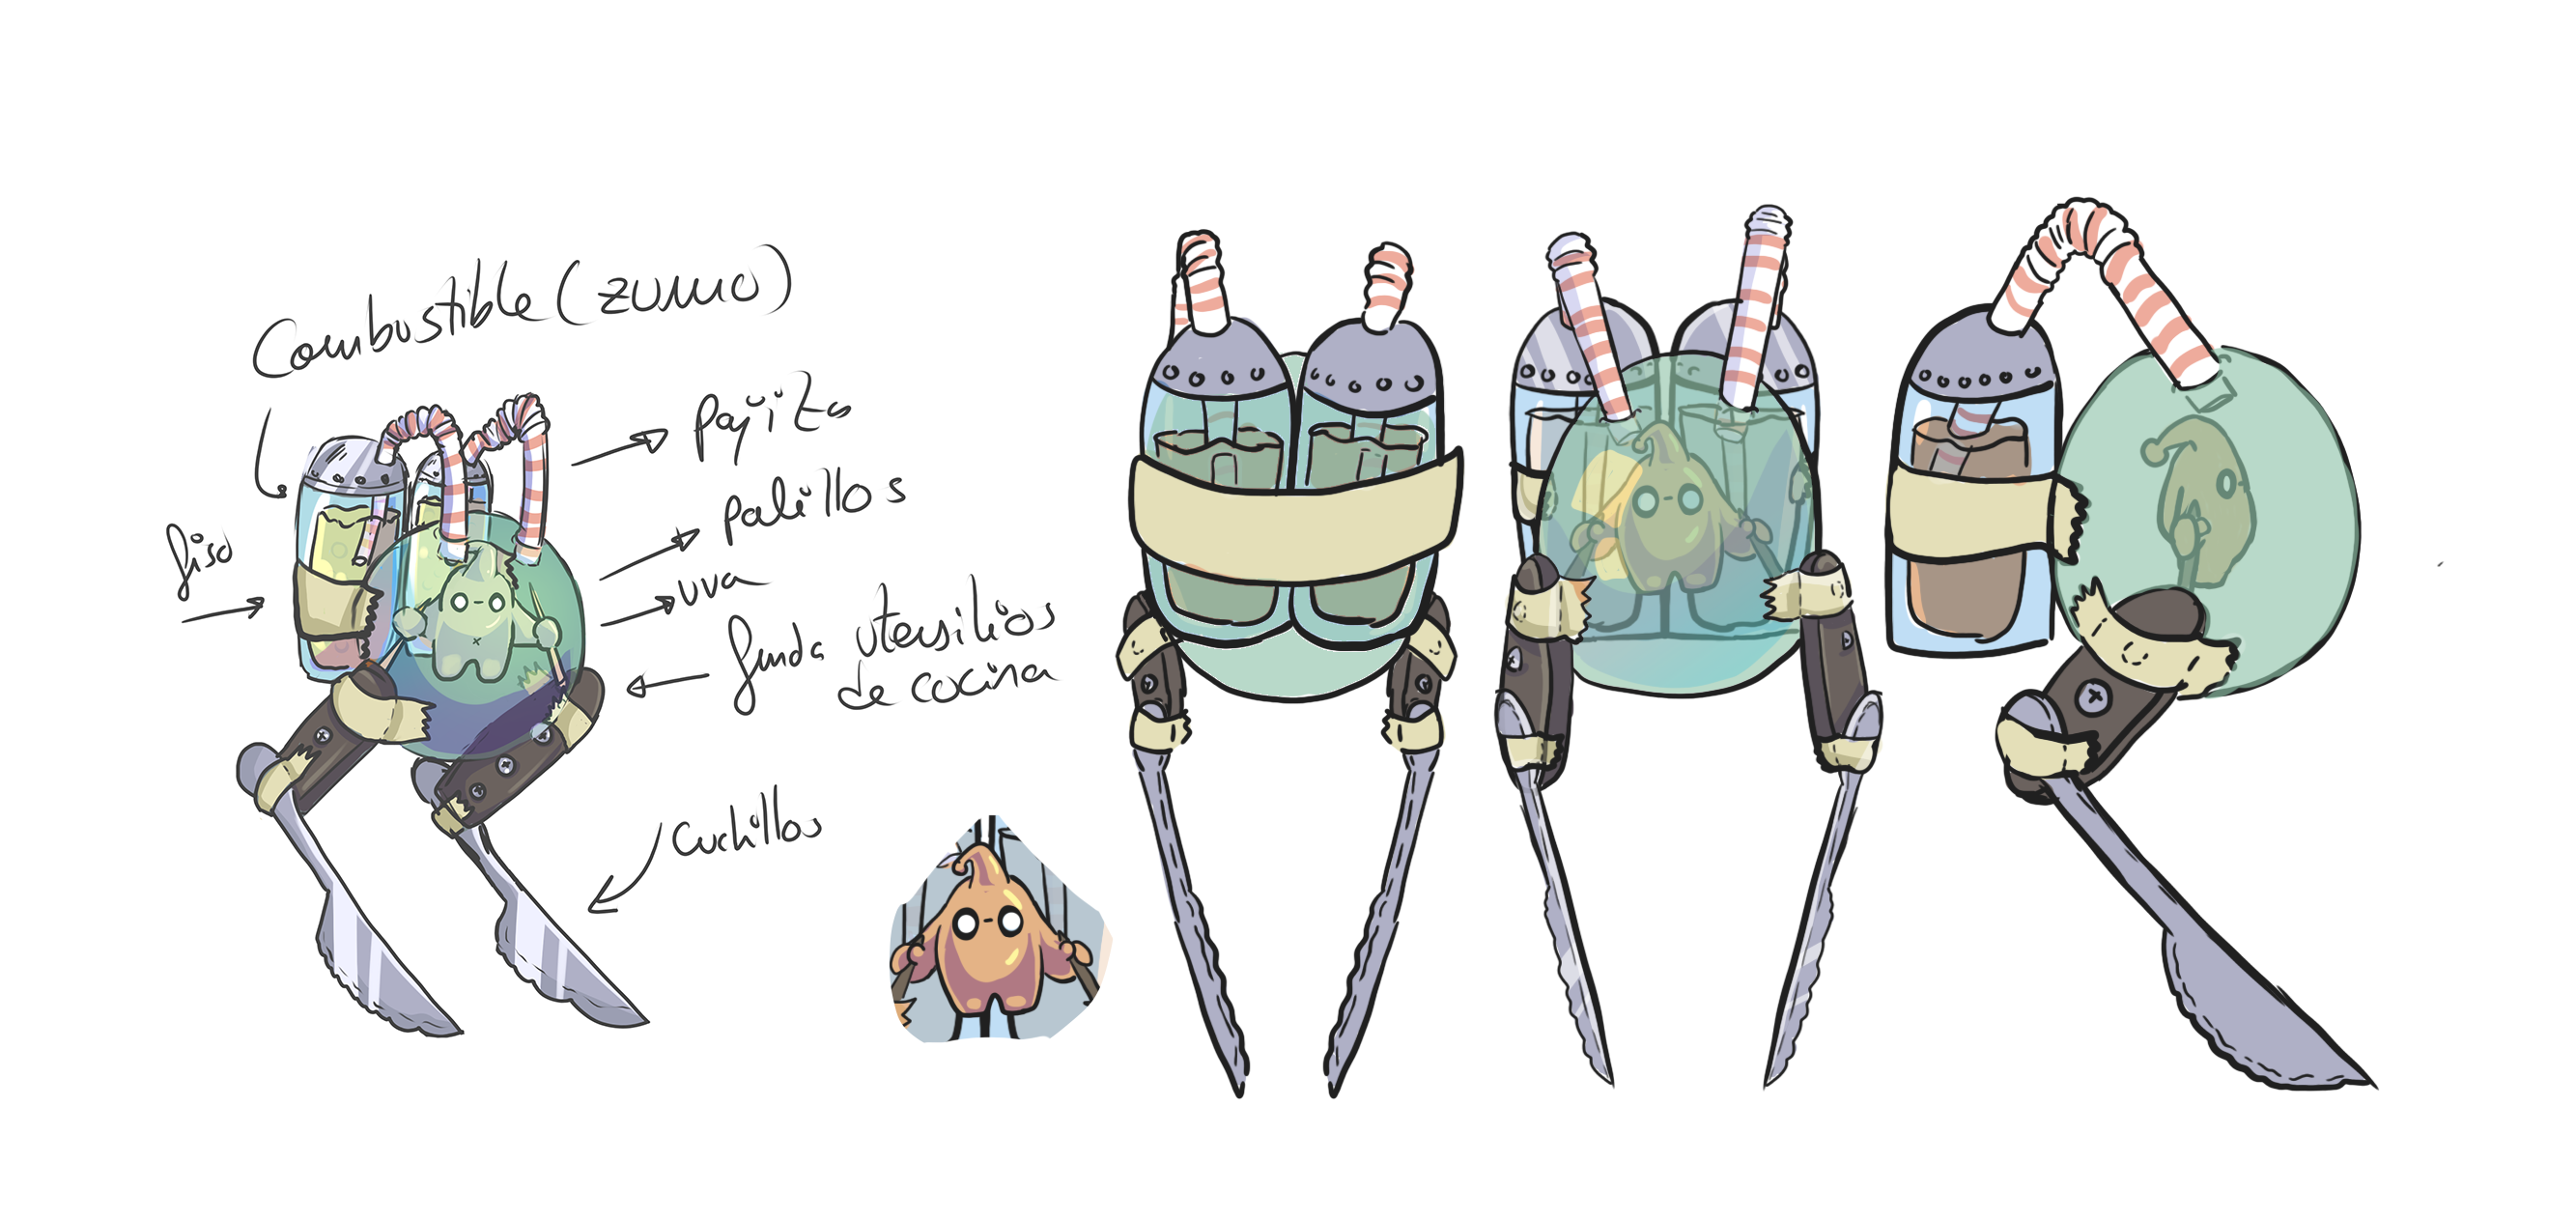 Combustible (zumo)
pajita
palillos
fiso
uva
funda utensilios
de cocina
cuchillos